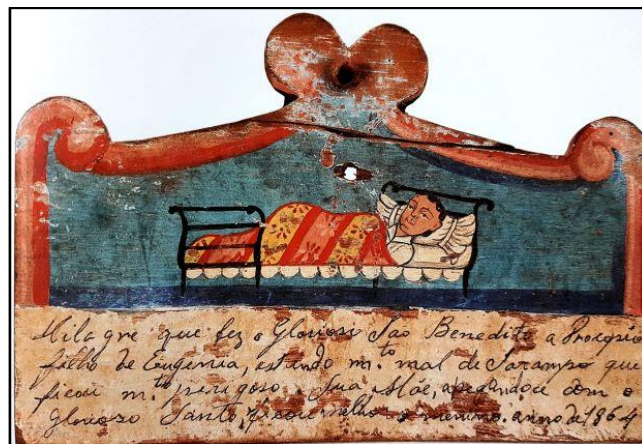 Milagre que fez o Glorioso São Benedito a Procopio
filho de Eugenia, estando m.to mal de Sarampo que
ficou m.to perigoso Sua Mãe, apegandoce com o
Glorioso Santo, ficou melho o menino. anno de 1864